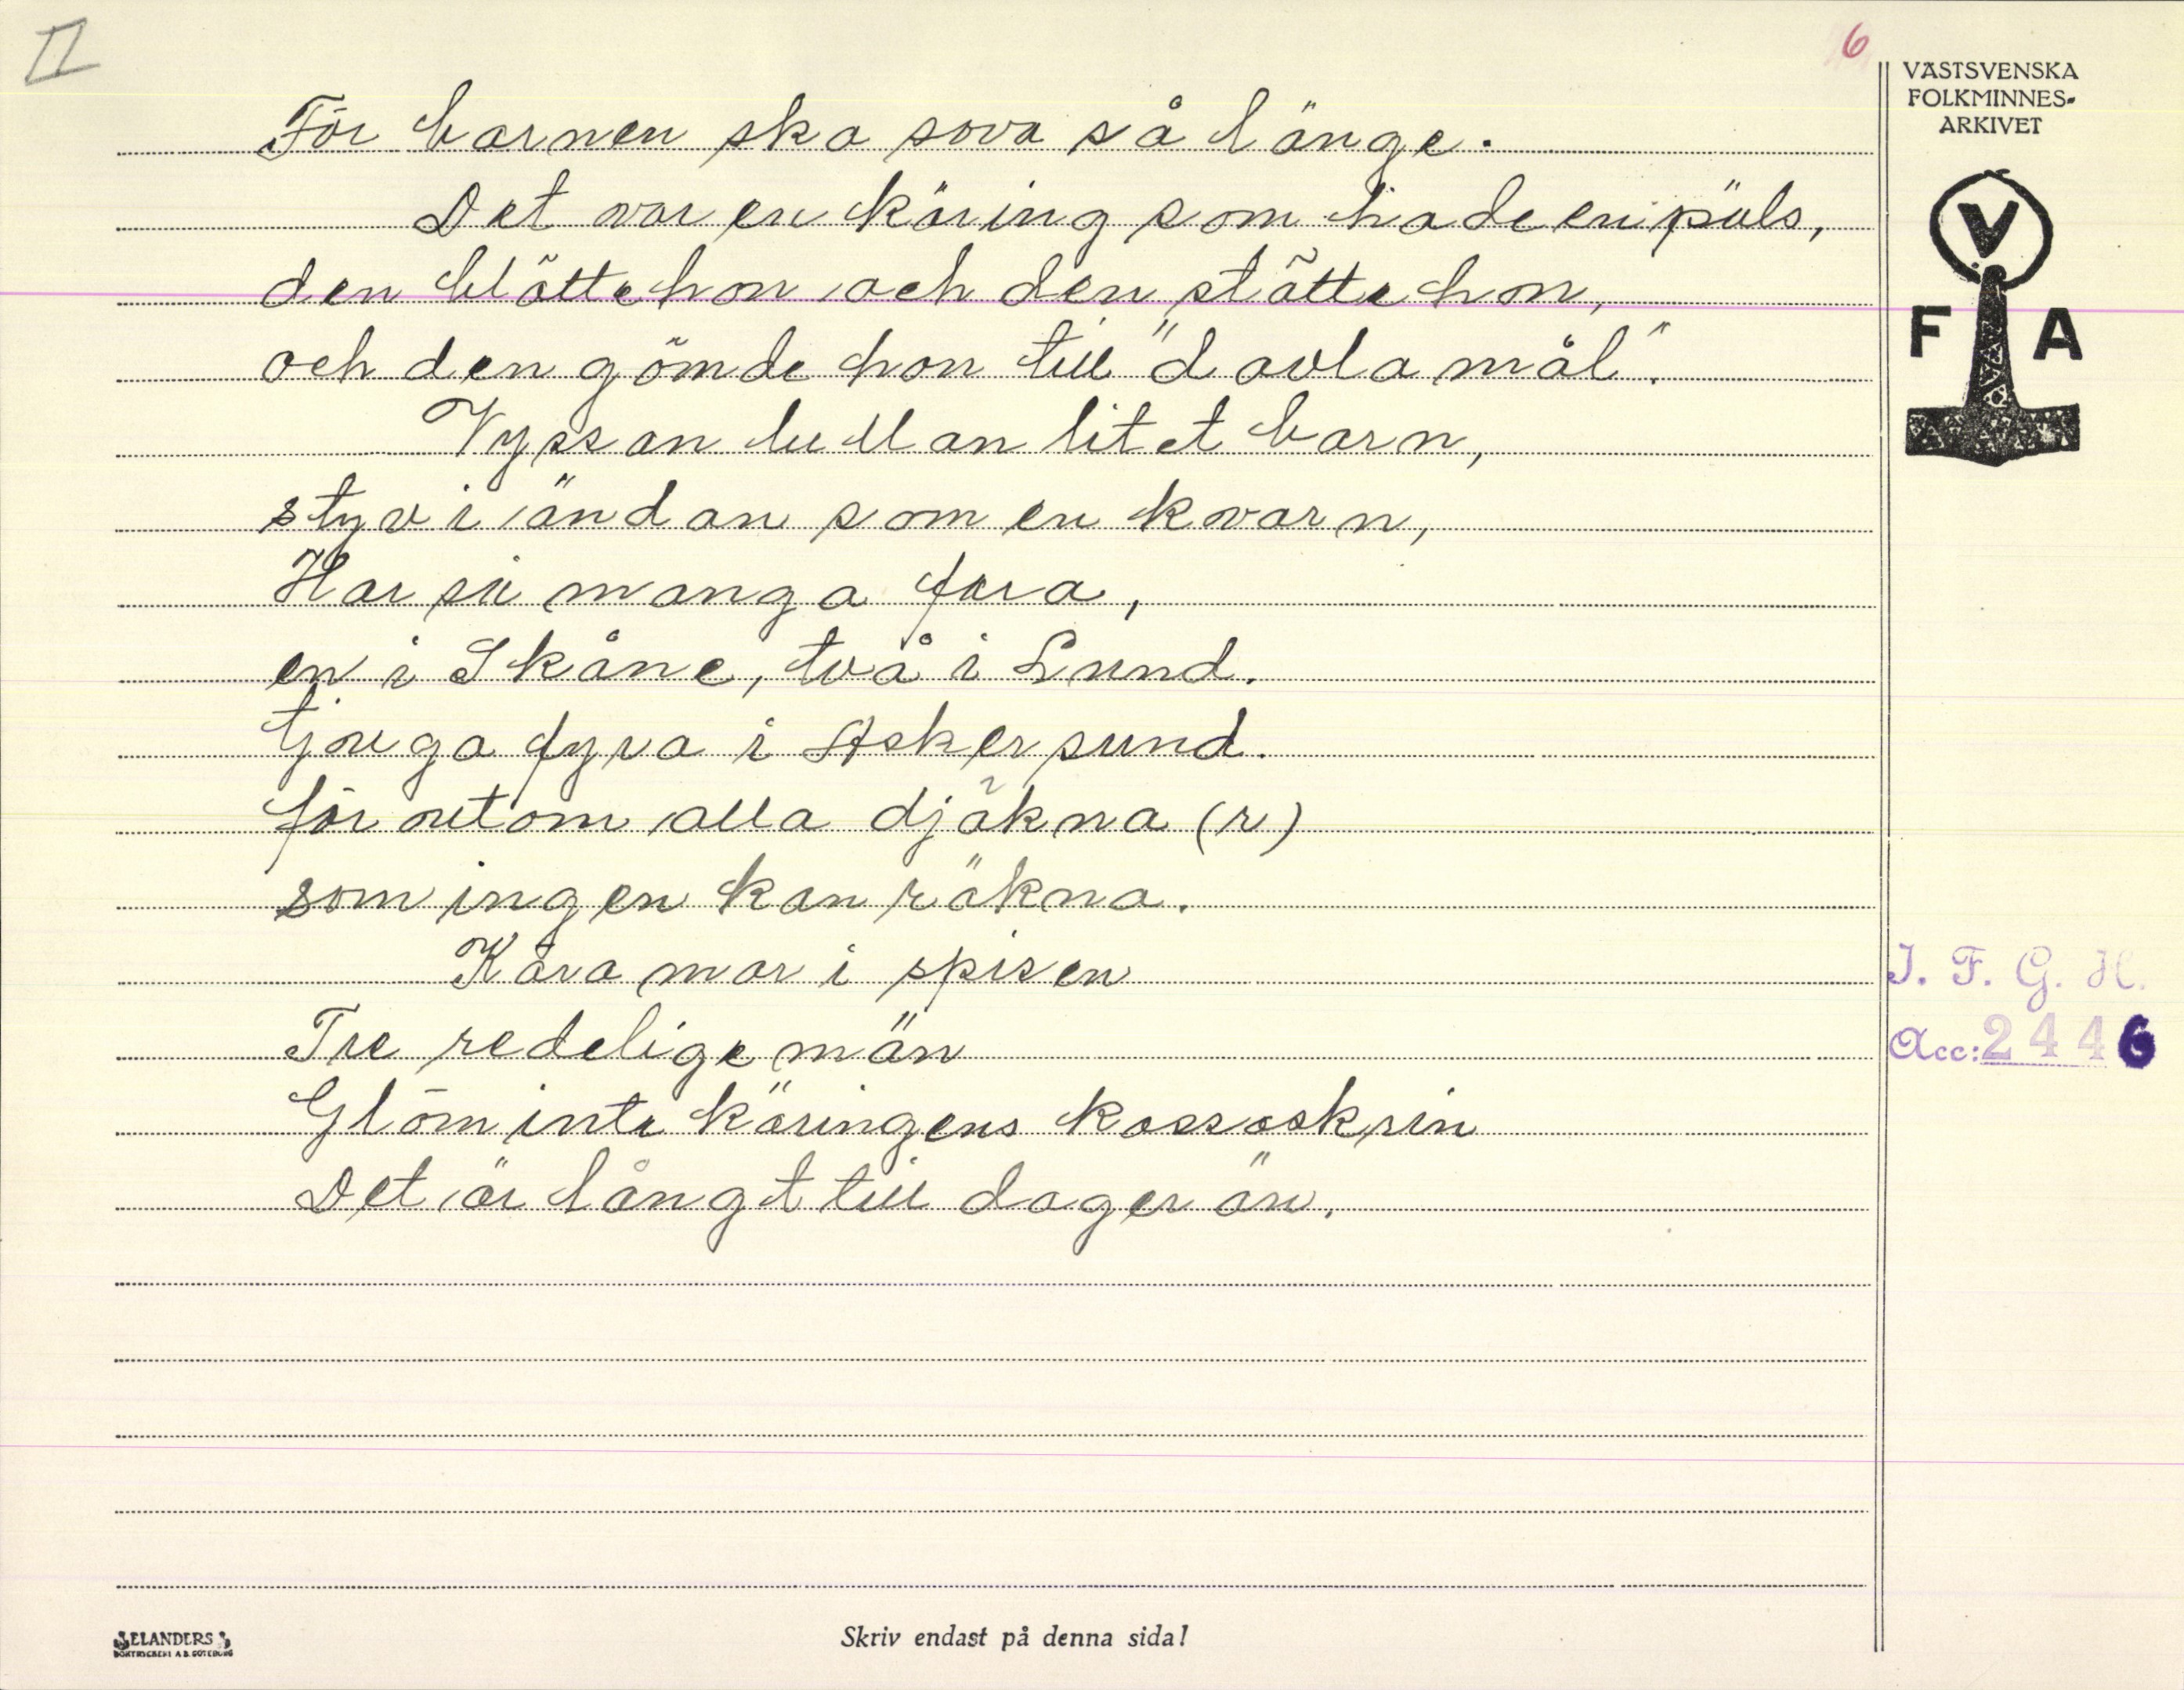 II
6
VÄSTSVENSKA
FOLKMINNES-
ARKIVET
V
F A
För barnen ska sova så länge.
Det var en käring som hade en päls,
den blötte hon och den stötte hon,
och den gömde hon till "davlamål".
Vyssan lullan litet barn,
styv i ändan som en kvarn,
Har så manga fara,
en i Skåne, två i Lund.
tjouga fyra i Askersund.
för outom alla djäkna (r)
som ingen kan räkna.
Kära mor i spisen
Tre redelige män
Glöm inte käringens kassaskrin
Det är långt till dager än.
I. F. G. H.
Acc: 2446
ELANDERS
BOKTRYCKERI A.B. GÖTEBORG
Skriv endast på denna sida!